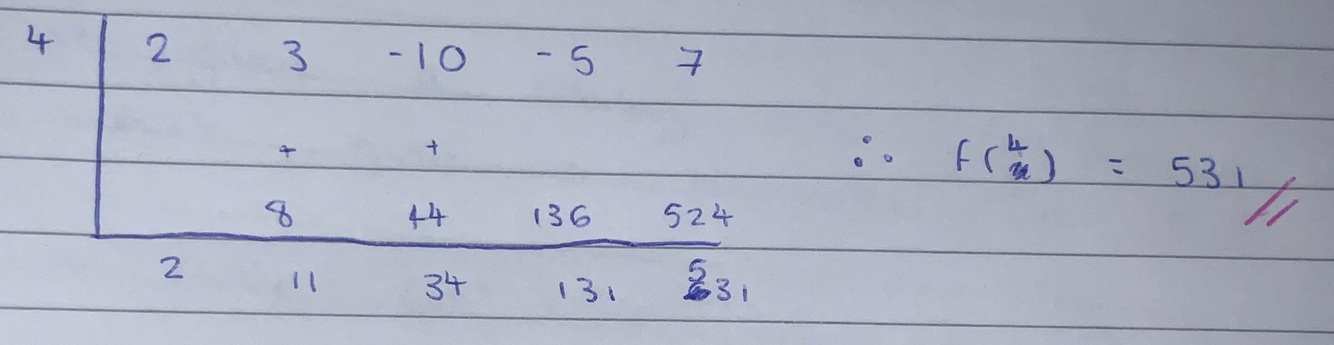 4 2 3 -10 -5 7
+ +
∴ f(4) = 531 //
8 44 136 524
2 11 34 131 531